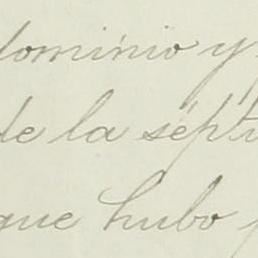 dominio y
de la sépti
que hubo